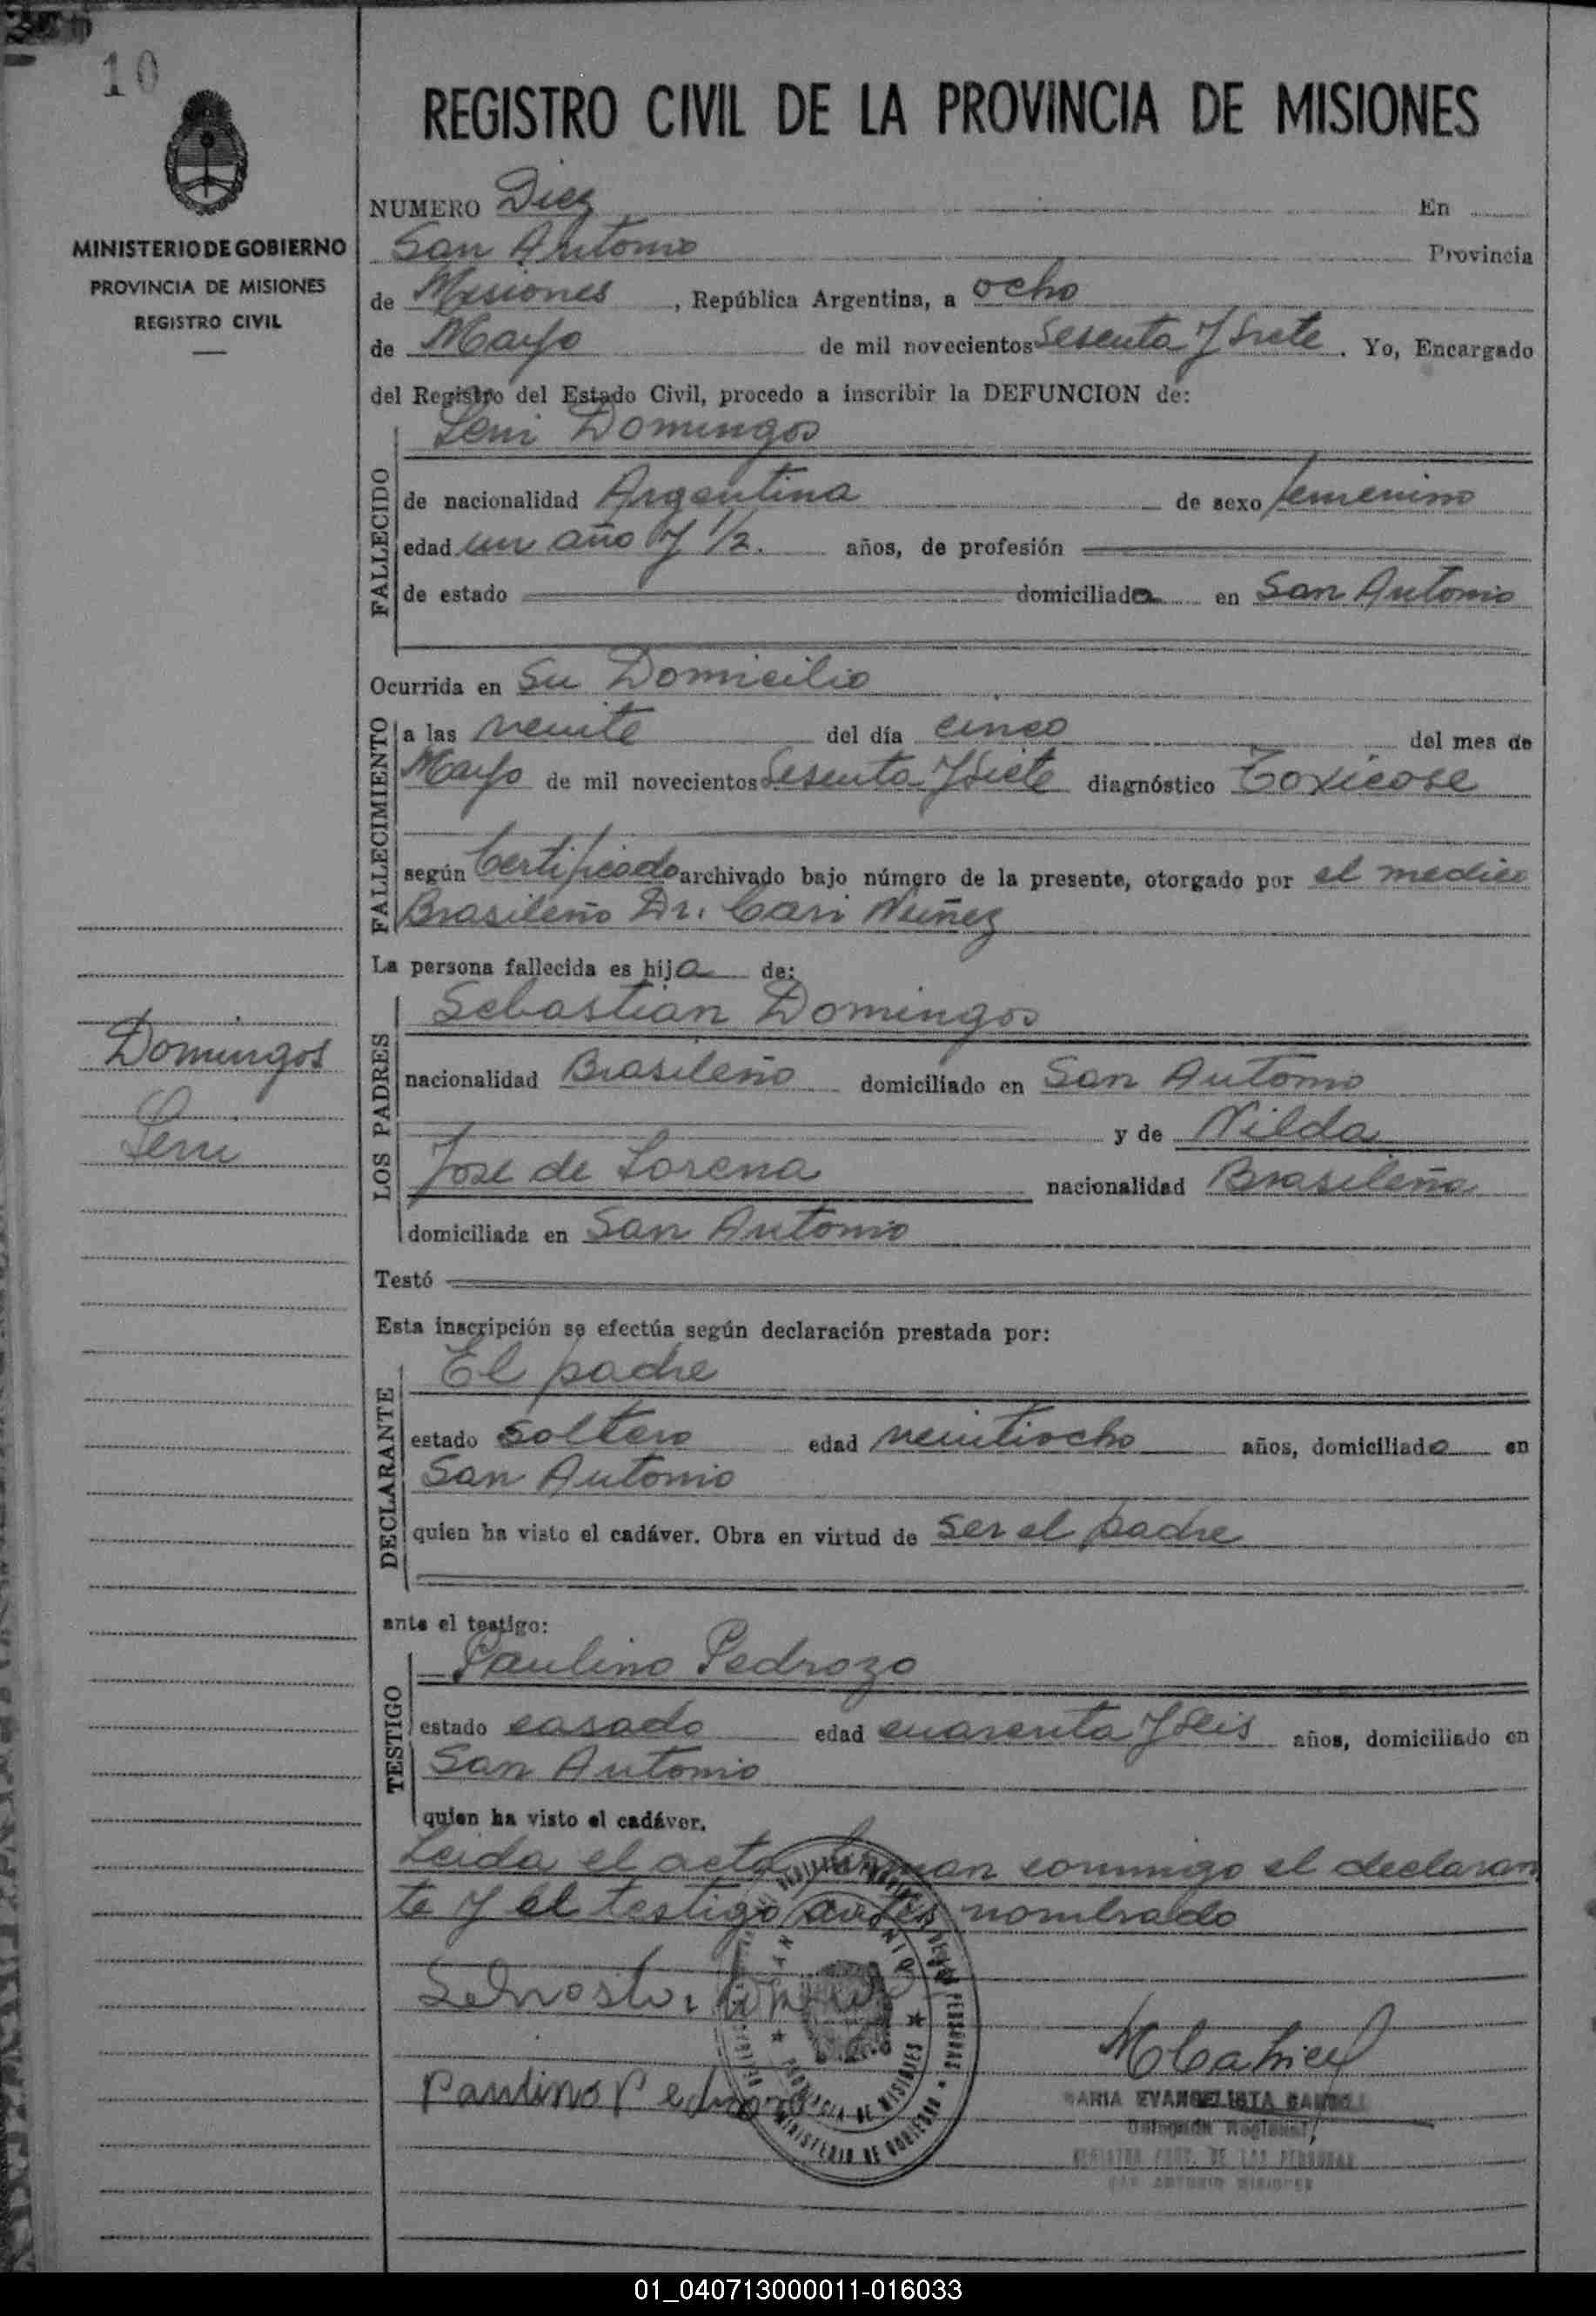 10
MINISTERIO DE GOBIERNO
PROVINCIA DE MISIONES
REGISTRO CIVIL
REGISTRO CIVIL DE LA PROVINCIA DE MISIONES
NUMERO Diez En
San Antonio Provincia
de Misiones, República Argentina, a ocho
de Mayo de mil novecientos Sesenta y Siete. Yo, Encargado
del Registro del Estado Civil, procedo a inscribir la DEFUNCION de:
Leni Domingos
FALLECIDO
de nacionalidad Argentina de sexo femenino
edad un año y 1/2. años, de profesión
de estado domiciliada en San Antonio
Ocurrida en Su Domicilio
FALLECIMIENTO
a las veinte del día cinco del mes de
Mayo de mil novecientos Sesenta y Siete diagnóstico Toxicose
según Certificado archivado bajo número de la presente, otorgado por el medico
Brasileño Dr. Cari Nuñez
La persona fallecida es hija de:
LOS PADRES
Sebastian Domingos
nacionalidad Brasileño domiciliado en San Antonio
y de Nilda
Jose de Lorena nacionalidad Brasileña
domiciliada en San Antonio
Testó
Domingos
Leni
Esta inscripción se efectúa según declaración prestada por:
DECLARANTE
El padre
estado soltero edad veintiocho años, domiciliado en
San Antonio
quien ha visto el cadáver. Obra en virtud de ser el padre
ante el testigo:
TESTIGO
Paulino Pedrozo
estado casado edad cuarenta y seis años, domiciliado en
San Antonio
quien ha visto el cadáver.
Leida el acta firman conmigo el declaran
te y el testigo antes nombrado
Paulino Pedrozo
PROVINCIA DE MISIONES
MINISTERIO DE GOBIERNO
MARIA EVANGELISTA
01_040713000011-016033